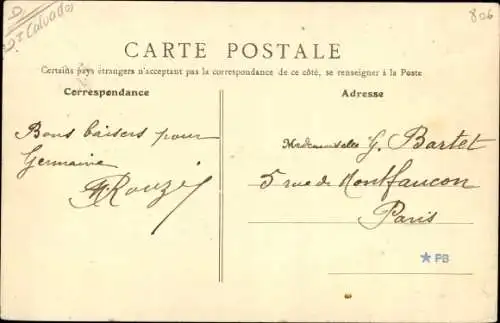 D
Dt Calvados
806
CARTE POSTALE
Certains pays étrangers n'acceptant pas la correspondance de ce côté, se renseigner à la Poste
Correspondance
Adresse
Bons baisers pour
Germaine
Mademoiselle G. Bartet
5 rue de Montfaucon
Paris
★ PB